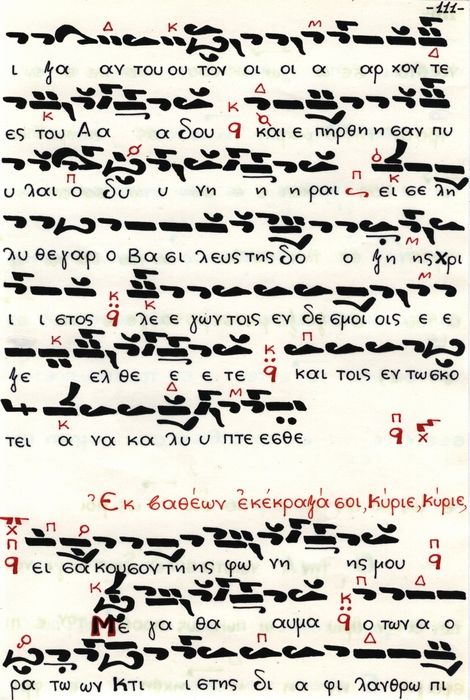 -111-
ι ξα αν του ου τον οι οι α αρ χον τε
ες του Α α α δου και ε πηρ θη η σαν πυ
υ λαι ο δυ υ νη η η ραι ει σε λη
λυ θε γαρ ο Βα σι λευς της δο ο ξη ης Χρι
ι ι στος λε ε γων τοις εν δε σμοι οις ε ε
ξε ελ θε ε ε τε και τοις εν τω σκο
τει α να κα λυ υ πτε εσθε
Ἐκ βαθέων ἐκέκραξά σοι, Κύριε, Κύριε,
ει σα κουσον της φω νη ης μου
Με γα θα αυμα ο των α ο
ρα τω ων Κτι ι στης δι α φι λανθρω πι